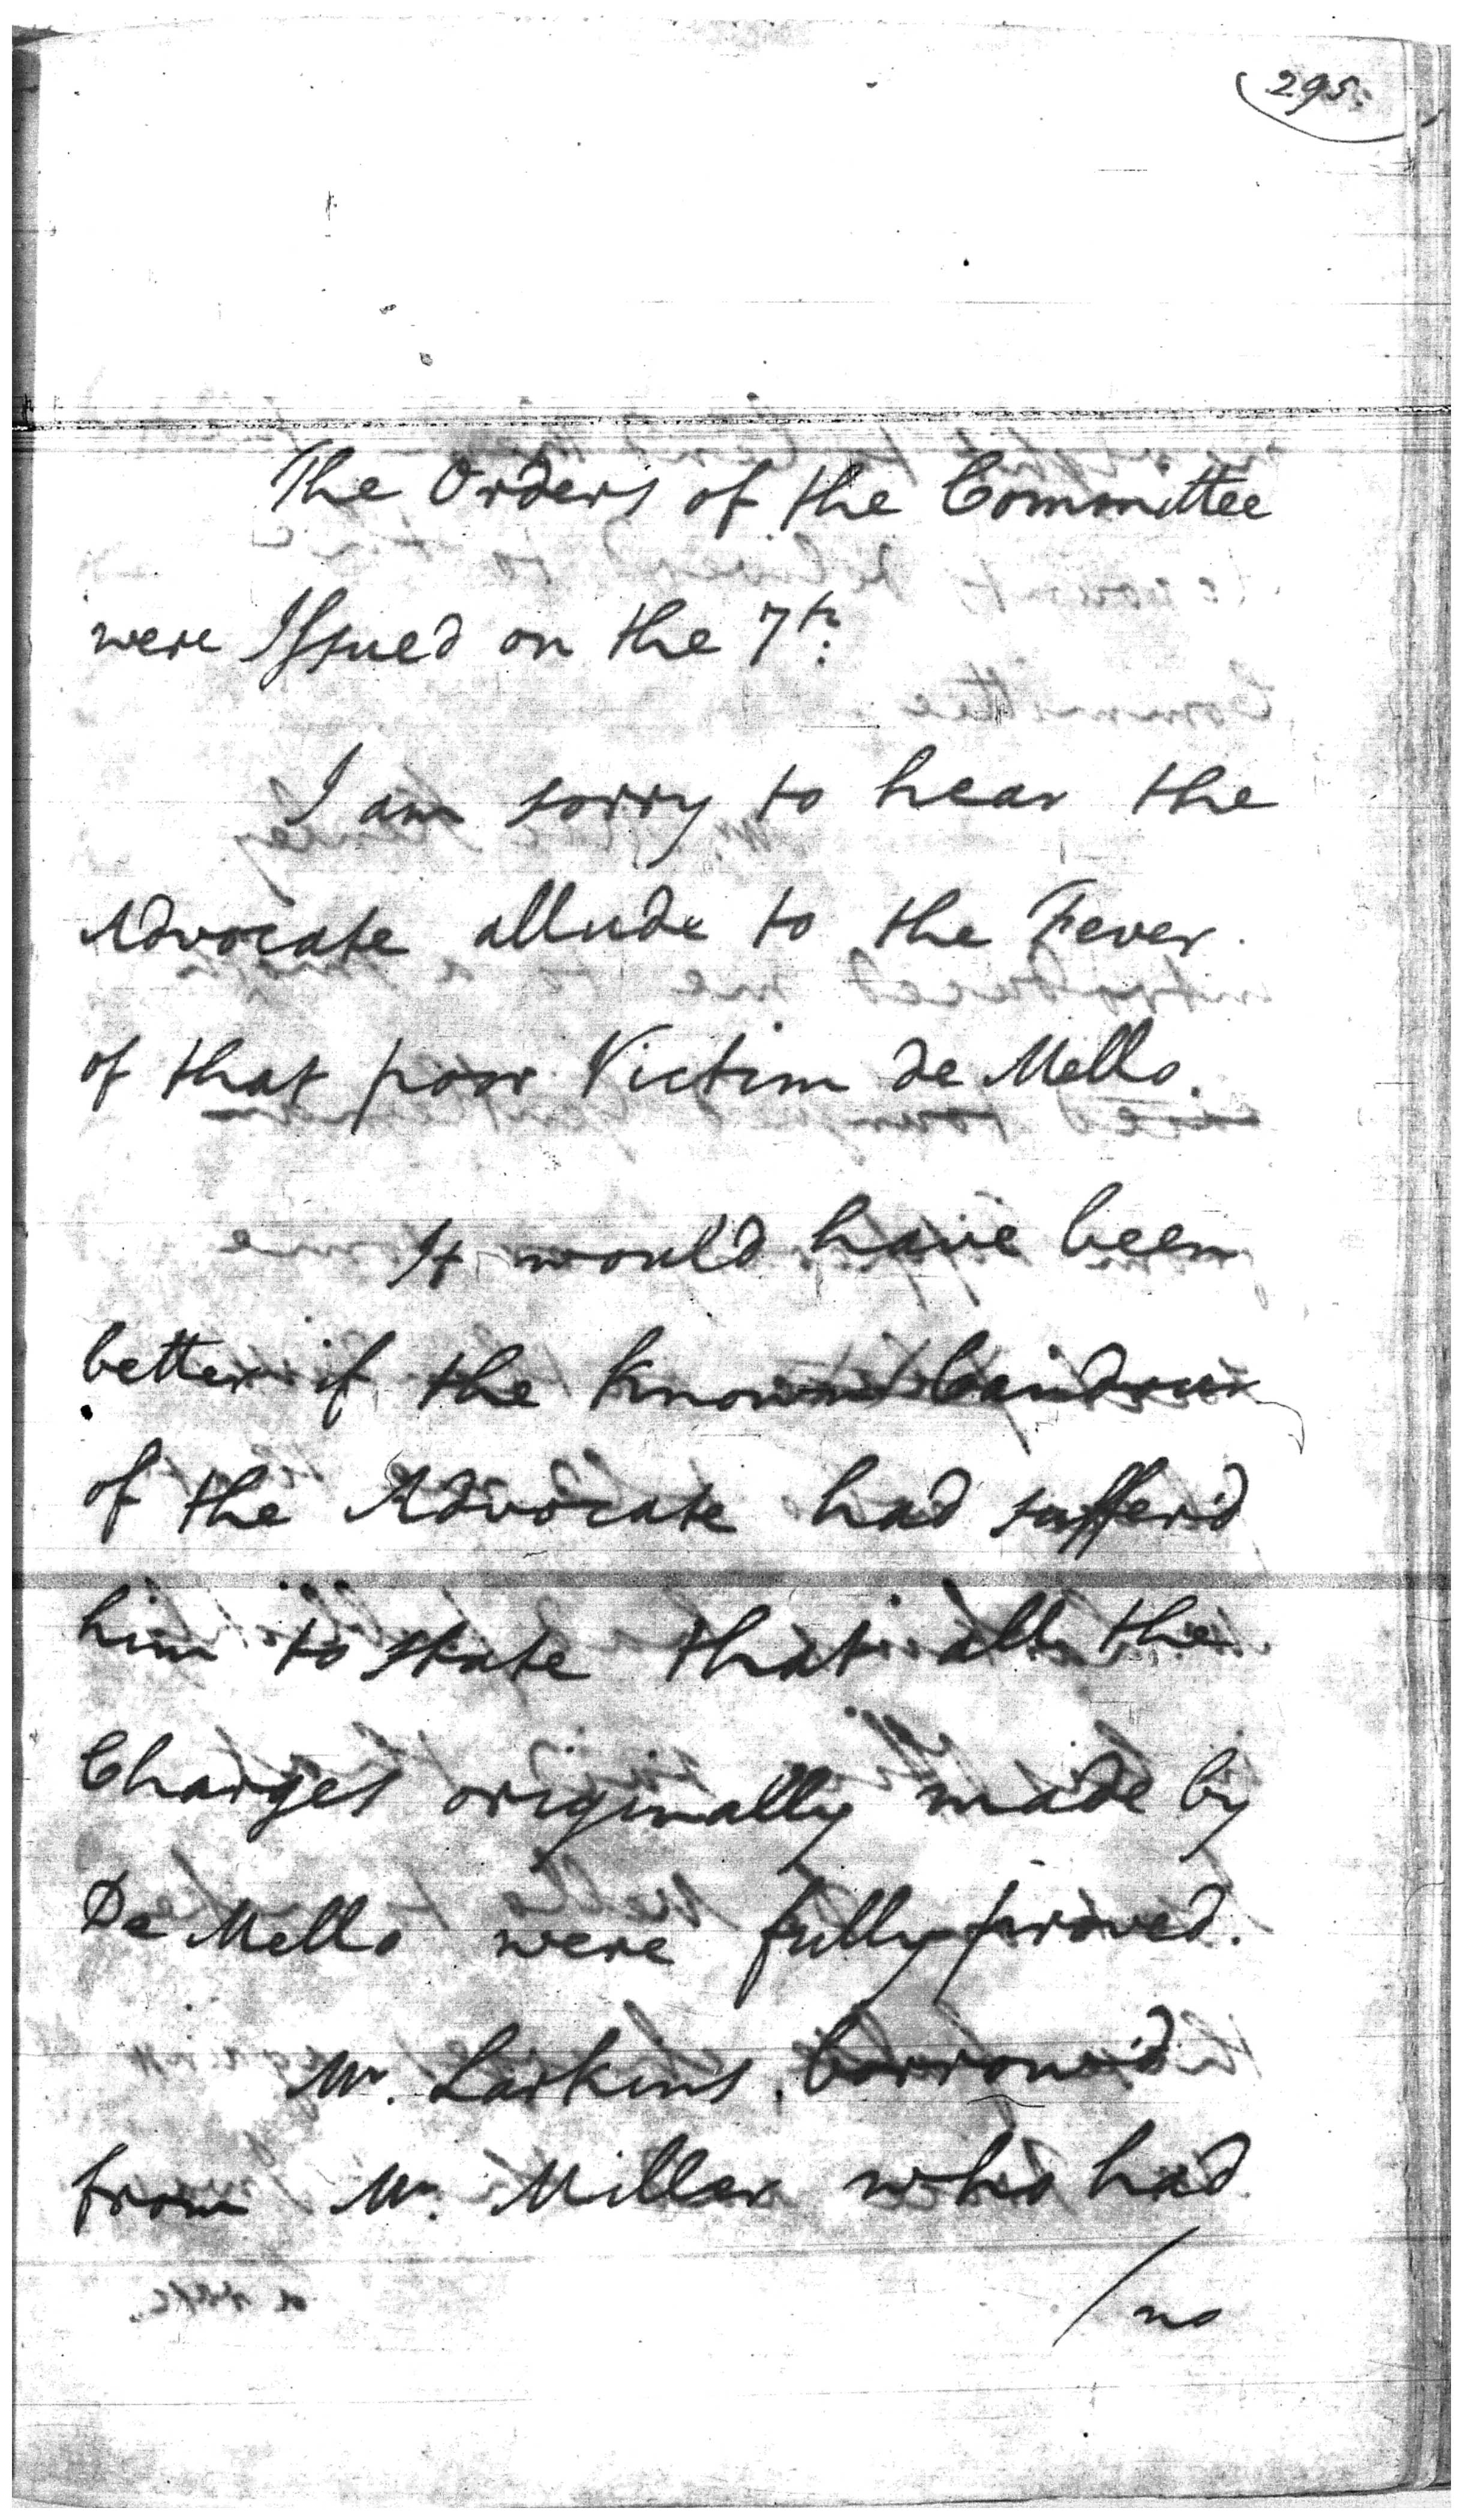 295.
The Orders of the Committee
were Issued on the 7th.
I am sorry to hear the
Advocate allude to the Fever
of that poor Victim de Mello.
It would have been
better if the known Candour
of the Advocate had suffer'd
him to state that all the
Charges originally made by
De Mello were fully proved.
Mr. Larkins, borrow'd
from Mr. Miller who had
/no